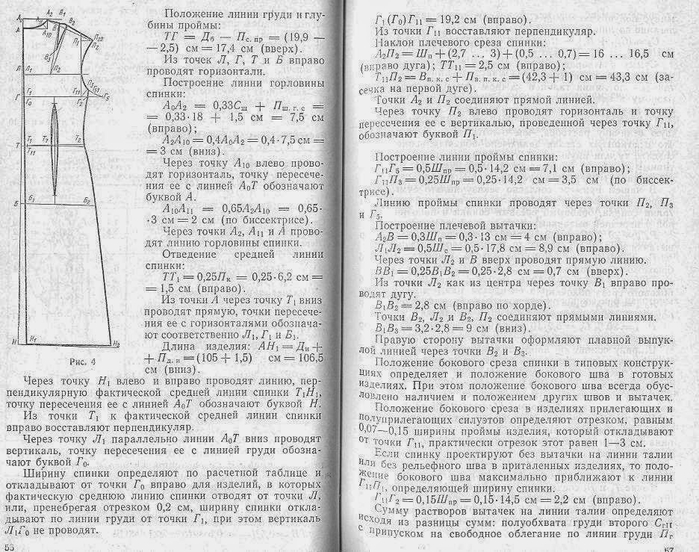 Положение линии груди и глу-
бины проймы:
ТГ = Дб − Пс. пр = (19,9 —
— 2,5) см = 17,4 см (вверх).
Из точек Л, Г, Т и Б вправо
проводят горизонтали.
Построение линии горловины
спинки:
А0А2 = 0,33Сш + Пш. г. с =
= 0,33·18 + 1,5 см = 7,5 см
(вправо);
А2А10 = 0,4А0А2 = 0,4·7,5 см =
= 3 см (вниз).
Через точку А10 влево прово-
дят горизонталь, точку пересече-
ния ее с линией А0Т обозначают
буквой А.
А10А11 = 0,65А2А10 = 0,65·
·3 см = 2 см (по биссектрисе).
Через точки А2, А11 и А прово-
дят линию горловины спинки.
Отведение средней линии
спинки:
ТТ1 = 0,25Пк = 0,25·6,2 см =
= 1,5 см (вправо).
Из точки А через точку Т1 вниз
проводят прямую, точки пересече-
ния ее с горизонталями обознача-
ют соответственно Л1, Г1 и Б1.
Длина изделия: АН1 = Ди +
+ Пд. и = (105 + 1,5) см = 106,5
см (вниз).
Рис. 4
Через точку Н1 влево и вправо проводят линию, пер-
пендикулярную фактической средней линии спинки Т1Н1,
точку пересечения ее с линией А0Т обозначают буквой Н.
Из точки Т1 к фактической средней линии спинки
вправо восставляют перпендикуляр.
Через точку Л1 параллельно линии А0Т вниз проводят
вертикаль, точку пересечения ее с линией груди обозна-
чают буквой Г0
Ширину спинки определяют по расчетной таблице и
откладывают от точки Г0 вправо для изделий, в которых
фактическую среднюю линию спинки отводят от точки Л,
или, пренебрегая отрезком 0,2 см, ширину спинки откла-
дывают по линии груди от точки Г1, при этом вертикаль
Л1Г0 не проводят.
Г1 (Г0) Г11 = 19,2 см (вправо).
Из точки Г11 восставляют перпендикуляр.
Наклон плечевого среза спинки:
А2П2 = Шп + (2,7 ... 3) + (0,5 ... 0,7) = 16 ... 16,5 см
(вправо дуга); ТТ11 = 2,5 см (вправо);
Т11П2 = Вп. к. с + Пв. п. к. с = (42,3 + 1) см = 43,3 см (за-
сечка на первой дуге).
Точки А2 и П2 соединяют прямой линией.
Через точку П2 влево проводят горизонталь и точку
пересечения ее с вертикалью, проведенной через точку Г11,
обозначают буквой П1.
Построение линии проймы спинки:
Г11Г5 = 0,5Шпр = 0,5·14,2 см = 7,1 см (вправо);
Г11П3 = 0,25Шпр = 0,25·14,2 см = 3,5 см (по биссек-
трисе).
Линию проймы спинки проводят через точки П2, П3
и Г5.
Построение плечевой вытачки:
А2В = 0,3Шп = 0,3·13 см = 4 см (вправо);
Л1Л2 = 0,5Шс = 0,5·17,8 см = 8,9 см (вправо).
Через точки Л2 и В вверх проводят прямую линию.
ВВ1 = 0,25В1В2 = 0,25·2,8 см = 0,7 см (вверх).
Из точки Л2 как из центра через точку В1 вправо про-
водят дугу.
В1В2 = 2,8 см (вправо по хорде).
Точки В2, Л2 и В2, П2 соединяют прямыми линиями.
В1В3 = 3,2·2,8 = 9 см (вниз).
Правую сторону вытачки оформляют плавной выпук-
лой линией через точки В2 и В3.
Положение бокового среза спинки в типовых конструк-
циях определяет и положение бокового шва в готовых
изделиях. При этом положение бокового шва всегда обус-
ловлено наличием и положением других швов и вытачек.
Положение бокового среза в изделиях прилегающих и
полуприлегающих силуэтов определяют отрезком, равным
0,07—0,15 ширины проймы изделия, который откладывают
от точки Г11, практически отрезок этот равен 1—3 см.
Если спинку проектируют без вытачки на линии талии
или без рельефного шва в приталенных изделиях, то поло-
жение бокового шва максимально приближают к линии
Г11П1, определяющей ширину спинки.
Г11Г2 = 0,15Шпр = 0,15·14,5 см = 2,2 см (вправо).
Сумму растворов вытачек на линии талии определяют
исходя из разницы сумм: полуобхвата груди второго СгII
с припуском на свободное облегание по линии груди Пг
56
57